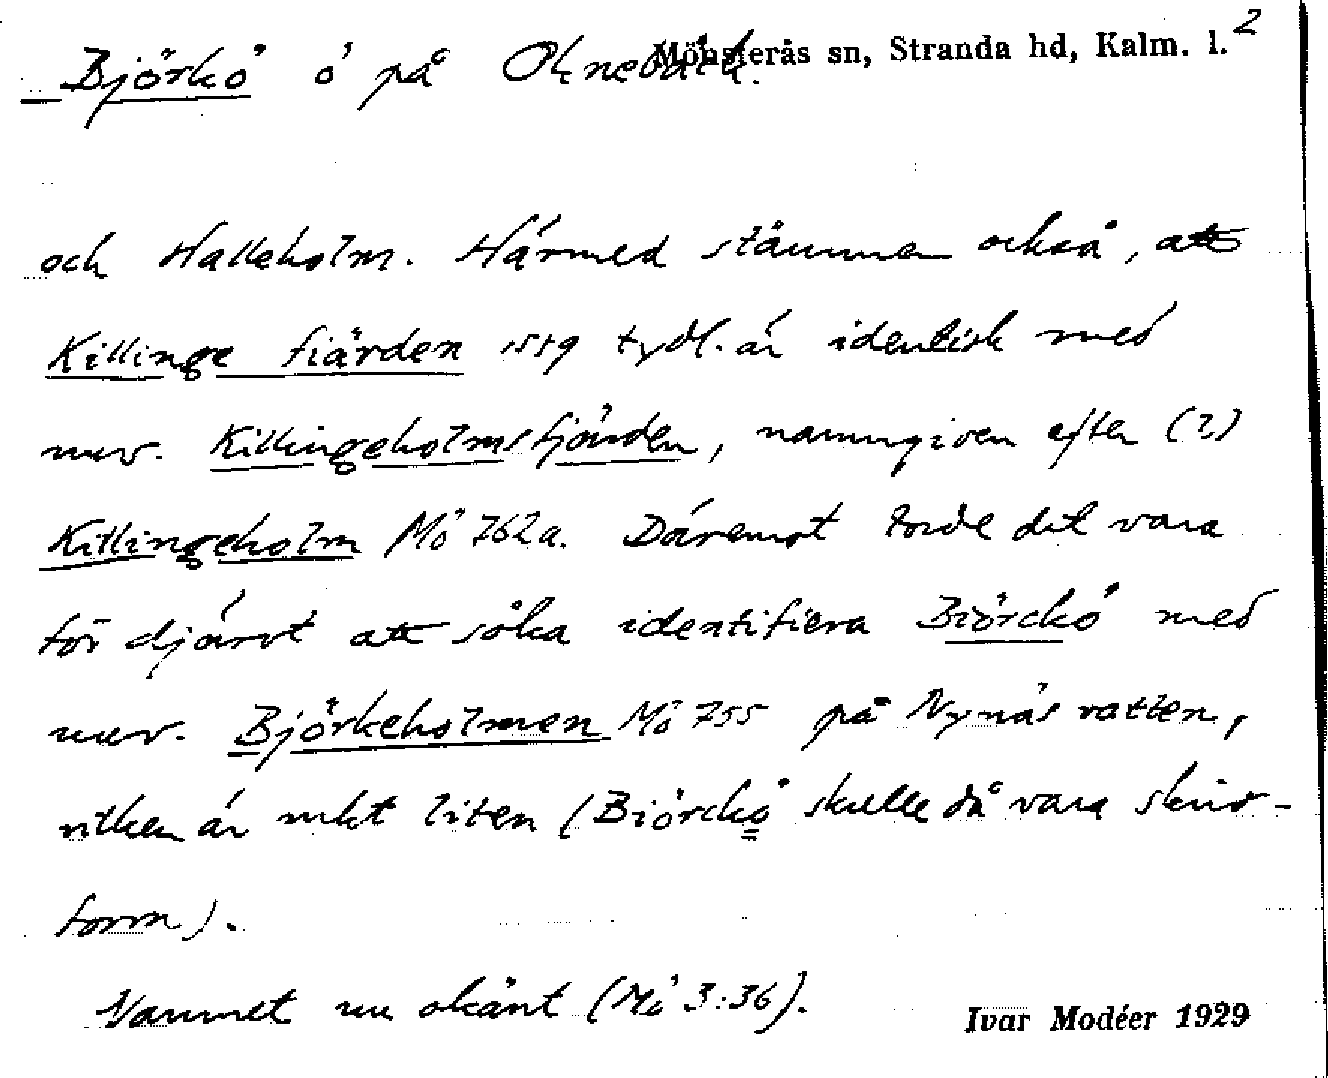 Mönsterås sn, Stranda hd, Kalm. l. 2
Björkö ö på Oknebäck.
och Halleholm. Härmed stämmer också, att
Killinge fiärden 1559 tydl. är identisk med
nuv. Killingeholmsfjärden, namngiven efter (?)
Killingeholm Mö 762a. Däremot torde det vara
för djärvt att söka identifiera Biörckö med
nuv. Björkeholmen Mö 755 på Nynäsvatten,
vilken är mkt liten (Biörckö skulle då vara skriv-
form).
Namnet nu okänt (Mö 3:36).
Ivar Modéer 1929